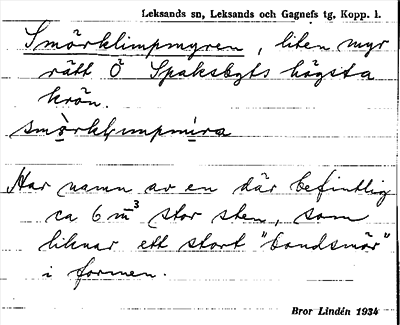 Leksands sn, Leksands och Gagnefs tg, Kopp. l.
Smörklimpmyren, liten myr
rätt Ö Spaksbyts högsta
krön.
smörklimpmira
Har namn av en där befintlig
ca 6 m³ stor sten, som
liknar ett stort "bondsmör"
i formen.
Bror Lindén 1934